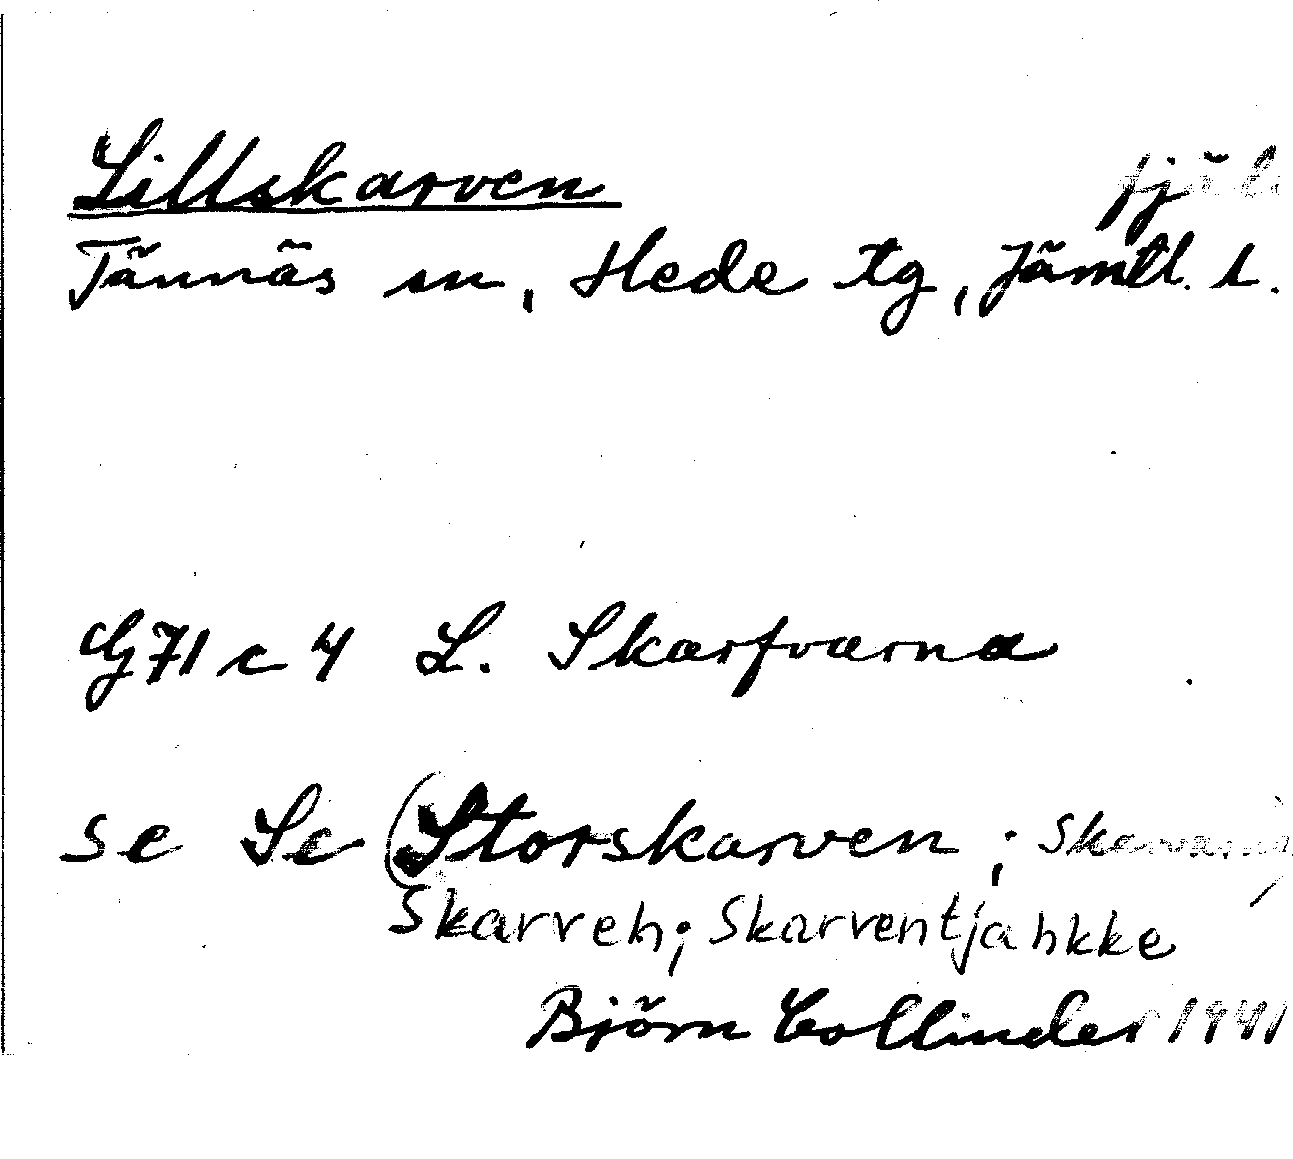 Lillskarven fjäll
Tännäs sn, Hede tg, Jämtl. l.
G71 c 4 L. Skarfvarna
se Sc (Storskarven; Skarvarna)
Skarveh; Skarventjahkke
Björn Collinder 1941